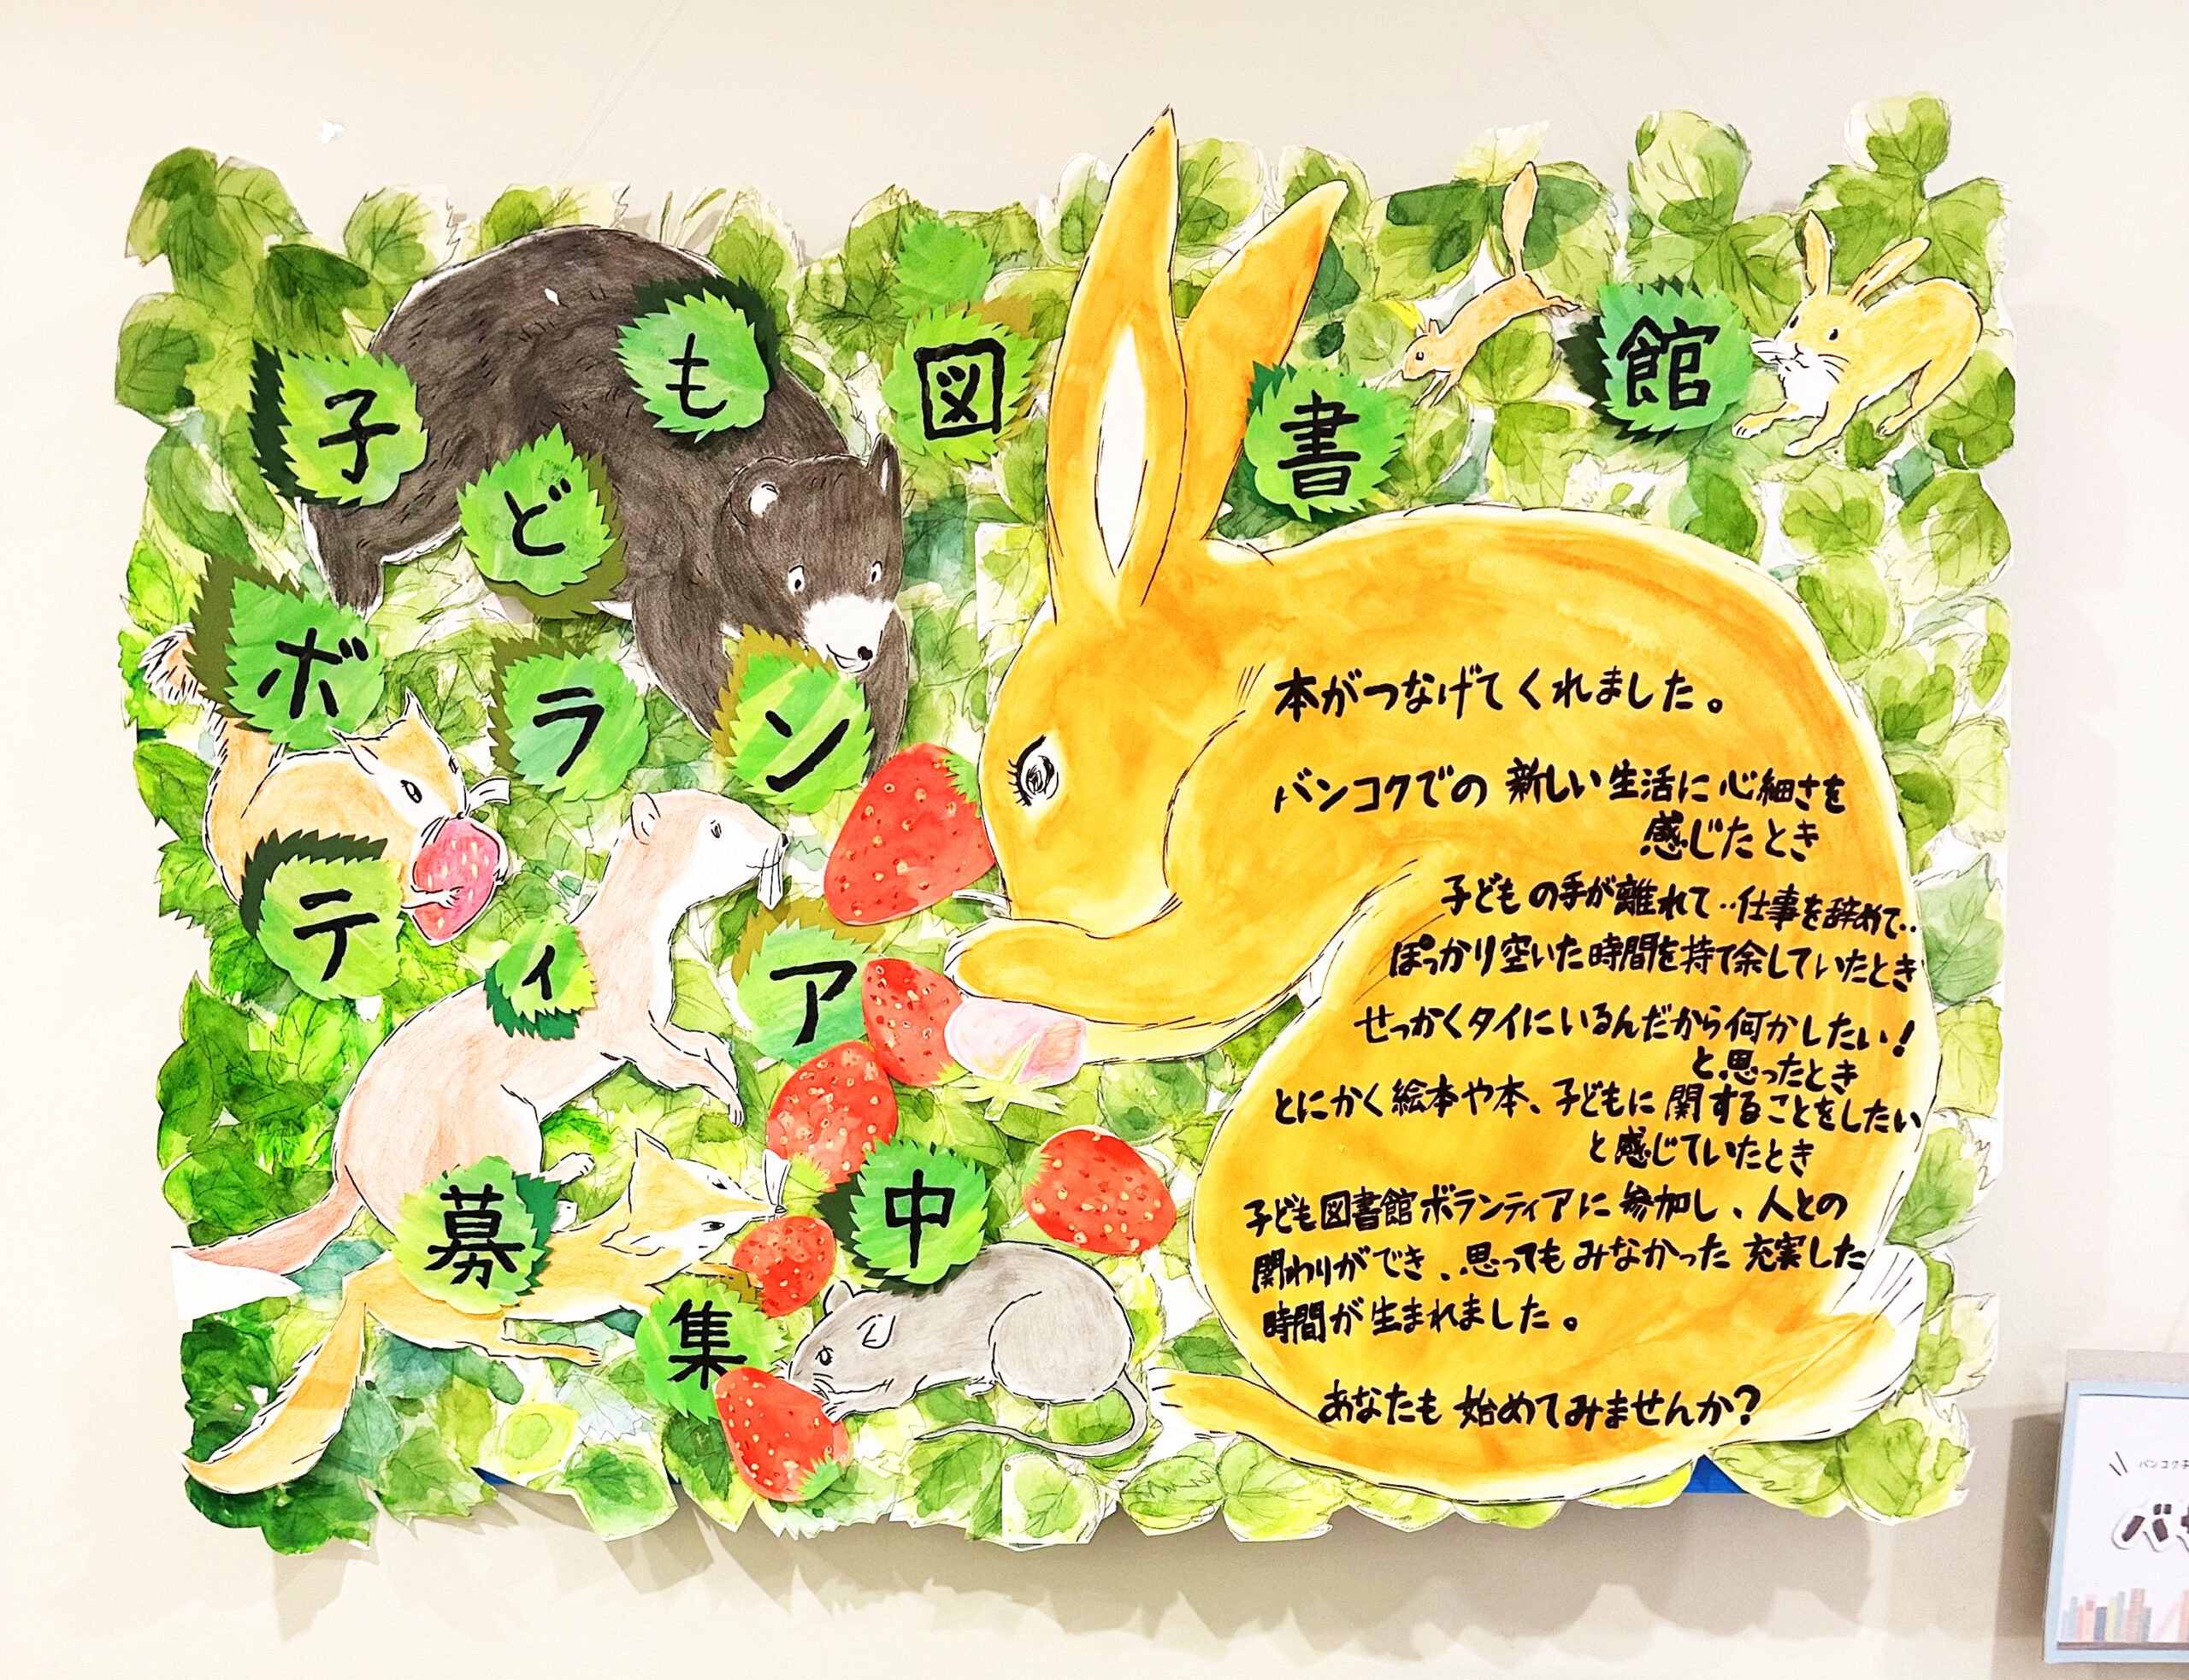 子ども図書館
ボランティア
募集中
本がつなげてくれました。
バンコクでの 新しい生活に 心細さを
感じたとき
子どもの手が離れて‥仕事を辞めて‥
ぽっかり空いた時間を持て余していたとき
せっかくタイにいるんだから何かしたい!
と思ったとき
とにかく絵本や本、子どもに 関することをしたい
と感じていたとき
子ども図書館ボランティアに 参加し、人との
関わりができ、思ってもみなかった 充実した
時間が生まれました。
あなたも 始めてみませんか?
バンコク子